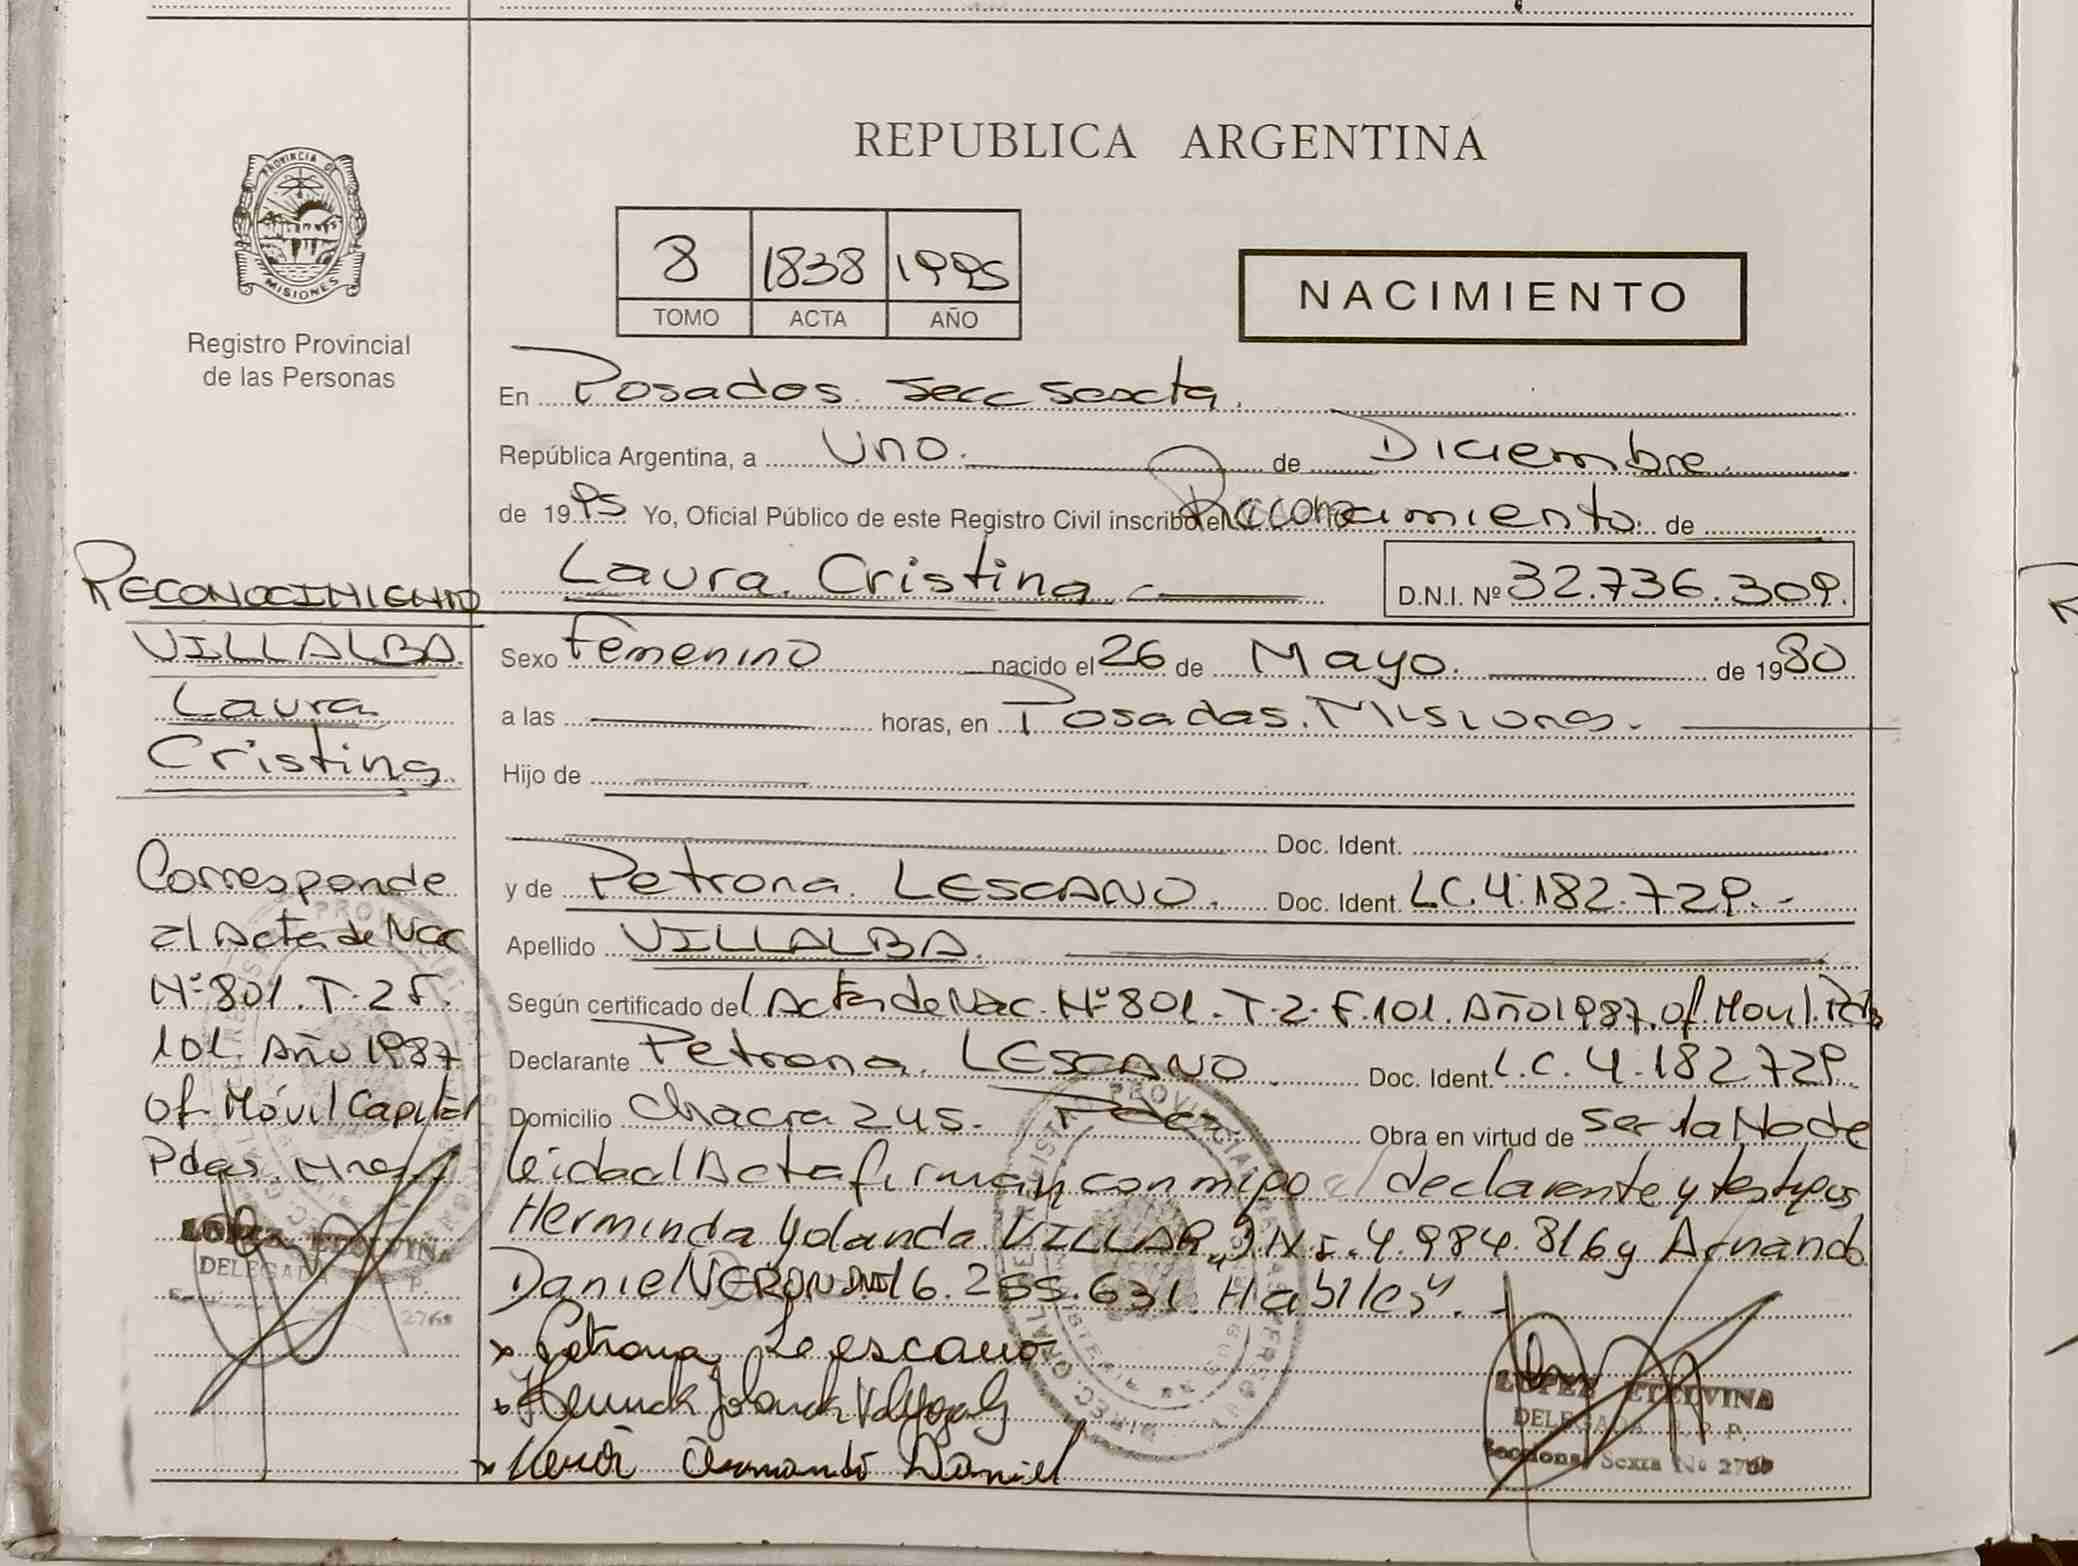 REPUBLICA ARGENTINA
PROVINCIA DE
MISIONES
Registro Provincial
de las Personas
8 1838 1995
TOMO ACTA AÑO
NACIMIENTO
En Posadas. Secc Sexta.
República Argentina, a Uno. de Diciembre.
de 1995 Yo, Oficial Público de este Registro Civil inscribo el Reconocimiento de
Laura Cristina
D.N.I. Nº 32.736.309.
Sexo Femenino nacido el 26 de Mayo. de 1980
a las horas, en Posadas. Misiones.
Hijo de
Doc. Ident.
y de Petrona. LESCANO. Doc. Ident. LC. 4.182.729.-
Apellido VILLALBA.
Según certificado del Acta de Nac. Nº 801. T. 2. F. 101. Año 1987. of Movil. Pdas
Declarante Petrona. LESCANO. Doc. Ident. L.C. 4.182729.
Domicilio Chacra 245. Pdas. Obra en virtud de ser la Madre
leida el Acta firman conmigo el declarante y testigos
Herminda Yolanda D.N.I. 4.984.816 y Armando
Daniel NERON DNI 16.255.631. Habiles".-
x Petrona Leescano
x Nerón Armando Daniel
LOPEZ ETELVINA
DELEGADA R.P.P.
Seccional Sexta Nº 2769
RECONOCIMIENTO
VILLALBA
Laura
Cristina
Corresponde
al Acta de Nac
Nº 801. T. 2 F.
101. Año 1987
of Móvil Capital
Pdas. Mnes
LOPEZ ETELVINA
DELEGADA R.P.P.
2769